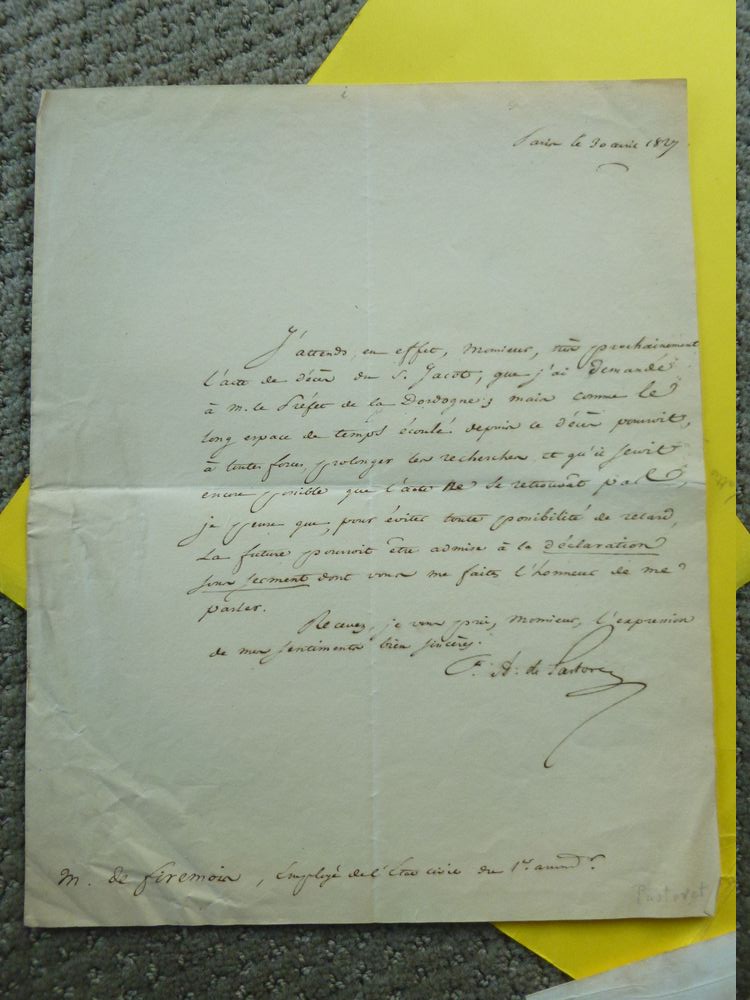 Paris le 30 avril 1827
J'attends, en effet, Monsieur, très prochainement
l'acte de décès du S. Jacott, que j'ai demandé
à M. le Préfet de la Dordogne; mais comme le
long espace de temps écoulé depuis ce décès pourroit,
à toute force, prolonger les recherches et qu'il seroit
encore possible que l'acte ne se retrouvât pas,
je pense que, pour éviter toute possibilité de retard,
la future pourroit être admise à la déclaration
sous serment dont vous me faites l'honneur de me
parler.
Recevez, je vous prie, Monsieur, l'expression
de mes sentiments bien sincères.
A. de Pastoret
M. de firemois, Employé de l'Etat civil du 1er arrond.r
Pastoret